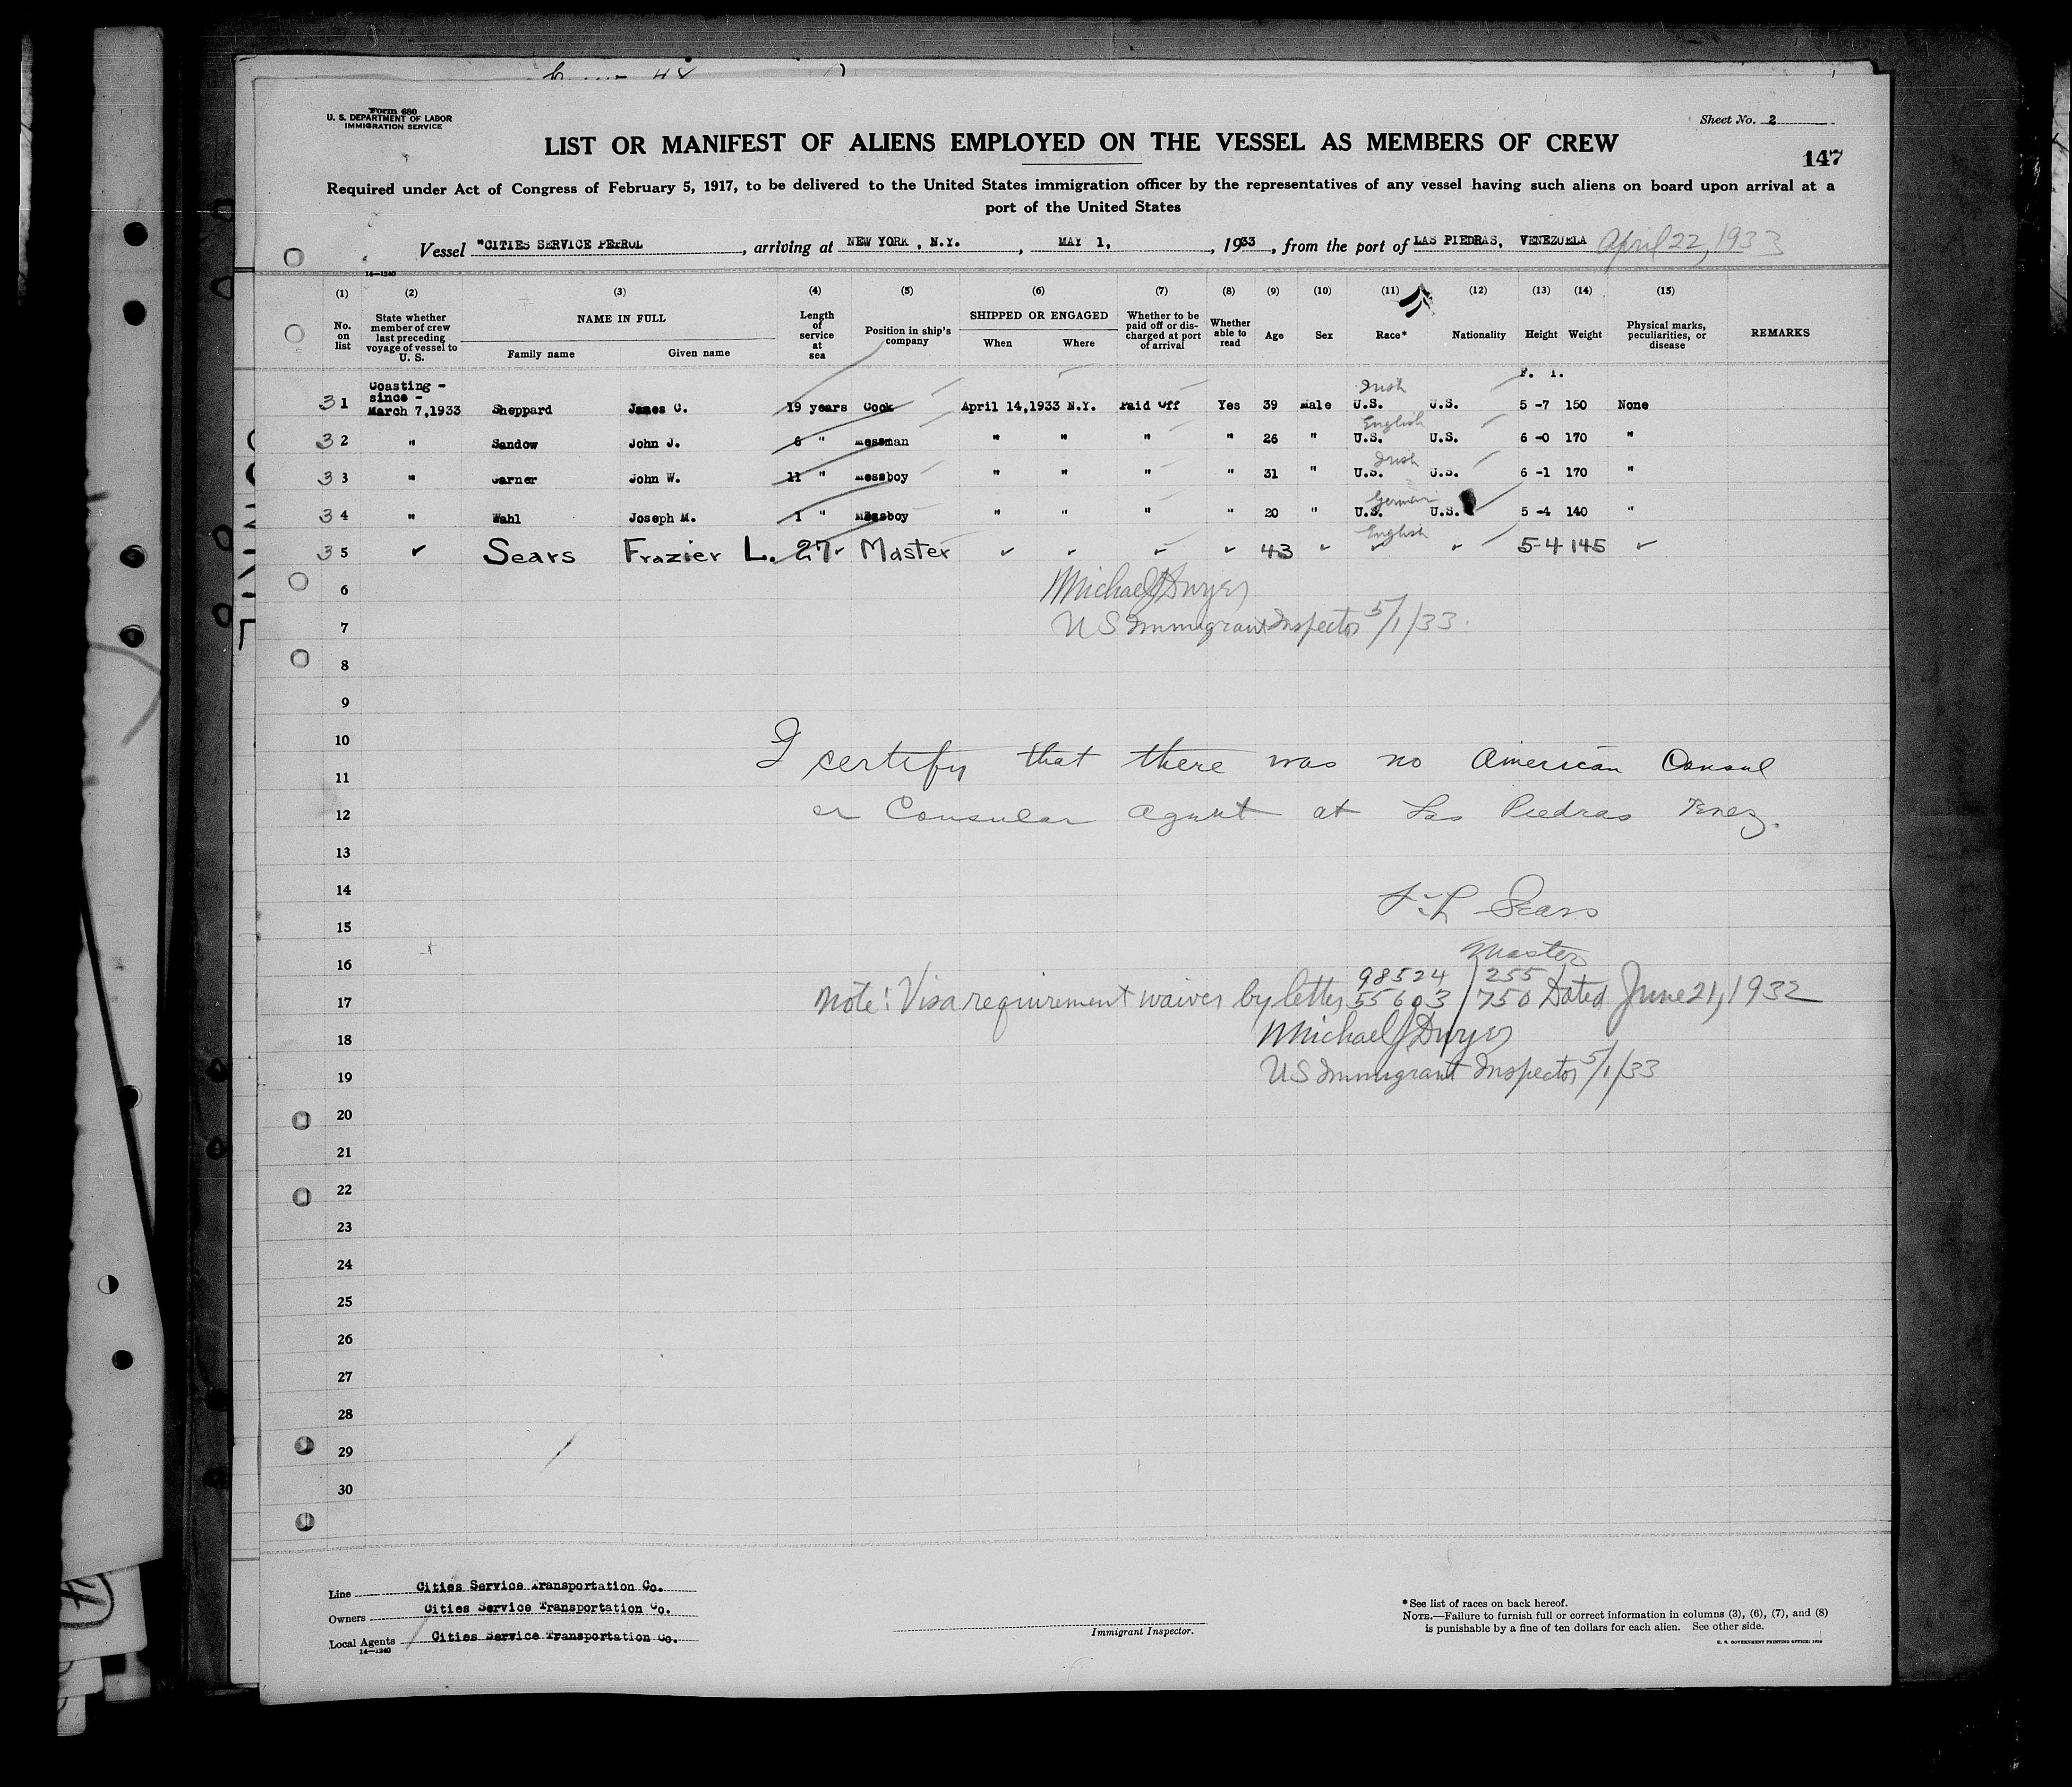 Form 680
U. S. DEPARTMENT OF LABOR
IMMIGRATION SERVICE
Sheet No. 2
LIST OR MANIFEST OF ALIENS EMPLOYED ON THE VESSEL AS MEMBERS OF CREW
147
Required under Act of Congress of February 5, 1917, to be delivered to the United States immigration officer by the representatives of any vessel having such aliens on board upon arrival at a
port of the United States
Vessel "CITIES SERVICE PETROL, arriving at NEW YORK, N.Y., MAY 1, 1933, from the port of LAS PIEDRAS, VENEZUELA April 22, 1933
14—1240
(1) (2) (3) (4) (5) (6) (7) (8) (9) (10) (11) (12) (13) (14) (15)
No. on list
State whether member of crew last preceding voyage of vessel to U. S.
NAME IN FULL
Family name Given name
Length of service at sea
Position in ship's company
SHIPPED OR ENGAGED
When Where
Whether to be paid off or discharged at port of arrival
Whether able to read
Age
Sex
Race*
Nationality
Height
Weight
Physical marks, peculiarities, or disease
REMARKS
Coasting -
since -
F. I.
Irish
31 March 7,1933 Sheppard James C. 19 years Cook April 14,1933 N.Y. Paid Off Yes 39 Male U.S. U.S. 5 -7 150 None
English
32 " Sandow John J. 6 " Messman " " " " 26 " U.S. U.S. 6 -0 170 "
Irish
33 " Garner John W. 11 " Messboy " " " " 31 " U.S. U.S. 6 -1 170 "
German
34 " Wahl Joseph M. 1 " Messboy " " " " 20 " U.S. U.S. 5 -4 140 "
English
35 " Sears Frazier L. 27 " Master " " " " 43 " " " 5-4 145 "
6
Michael J Dwyer
7
US Immigrant Inspector 5/1/33
8
9
10
I certify that there was no American Consul
11
or Consular Agent at Las Piedras Venez.
12
13
14
F. L. Sears
15
Master
16
98524 / 255
17
Note: Visa requirement waiver by letter 55603 / 750 Dated June 21, 1932
18
Michael J Dwyer
19
US Immigrant Inspector 5/1/33
20
21
22
23
24
25
26
27
28
29
30
Line Cities Service Transportation Co.
Owners Cities Service Transportation Co.
Local Agents Cities Service Transportation Co.
14—1240
Immigrant Inspector.
*See list of races on back hereof.
NOTE.—Failure to furnish full or correct information in columns (3), (6), (7), and (8)
is punishable by a fine of ten dollars for each alien. See other side.